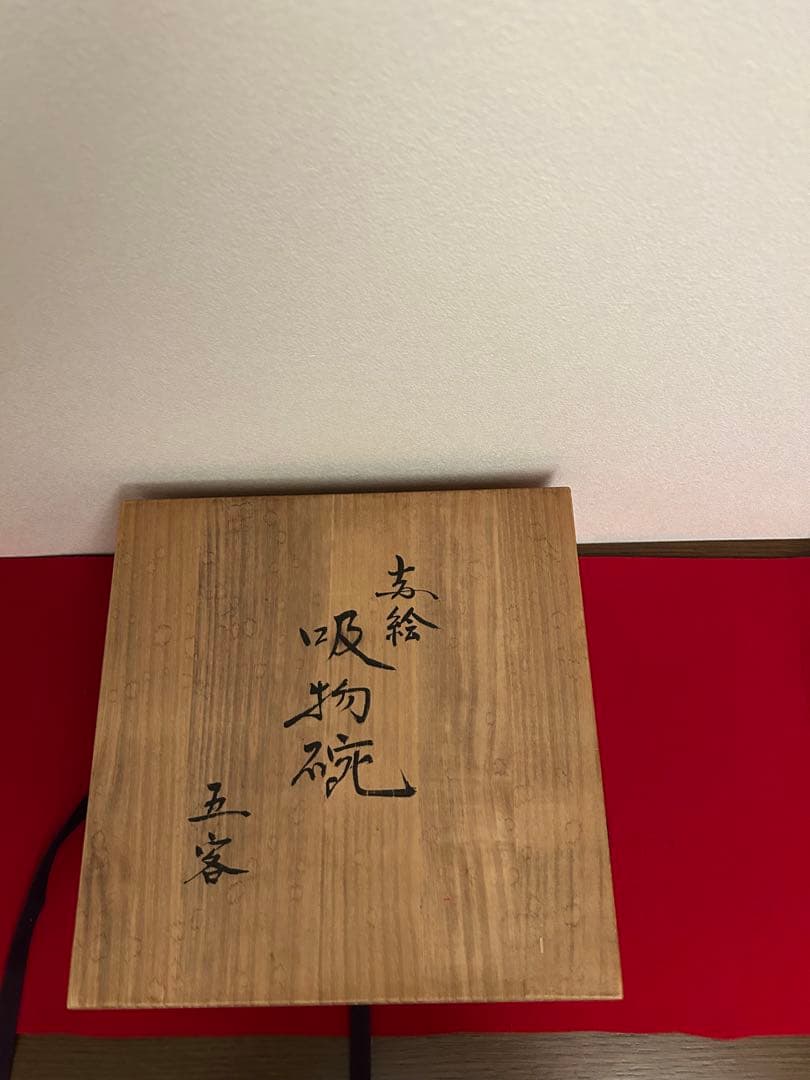 赤絵
吸物碗
五客